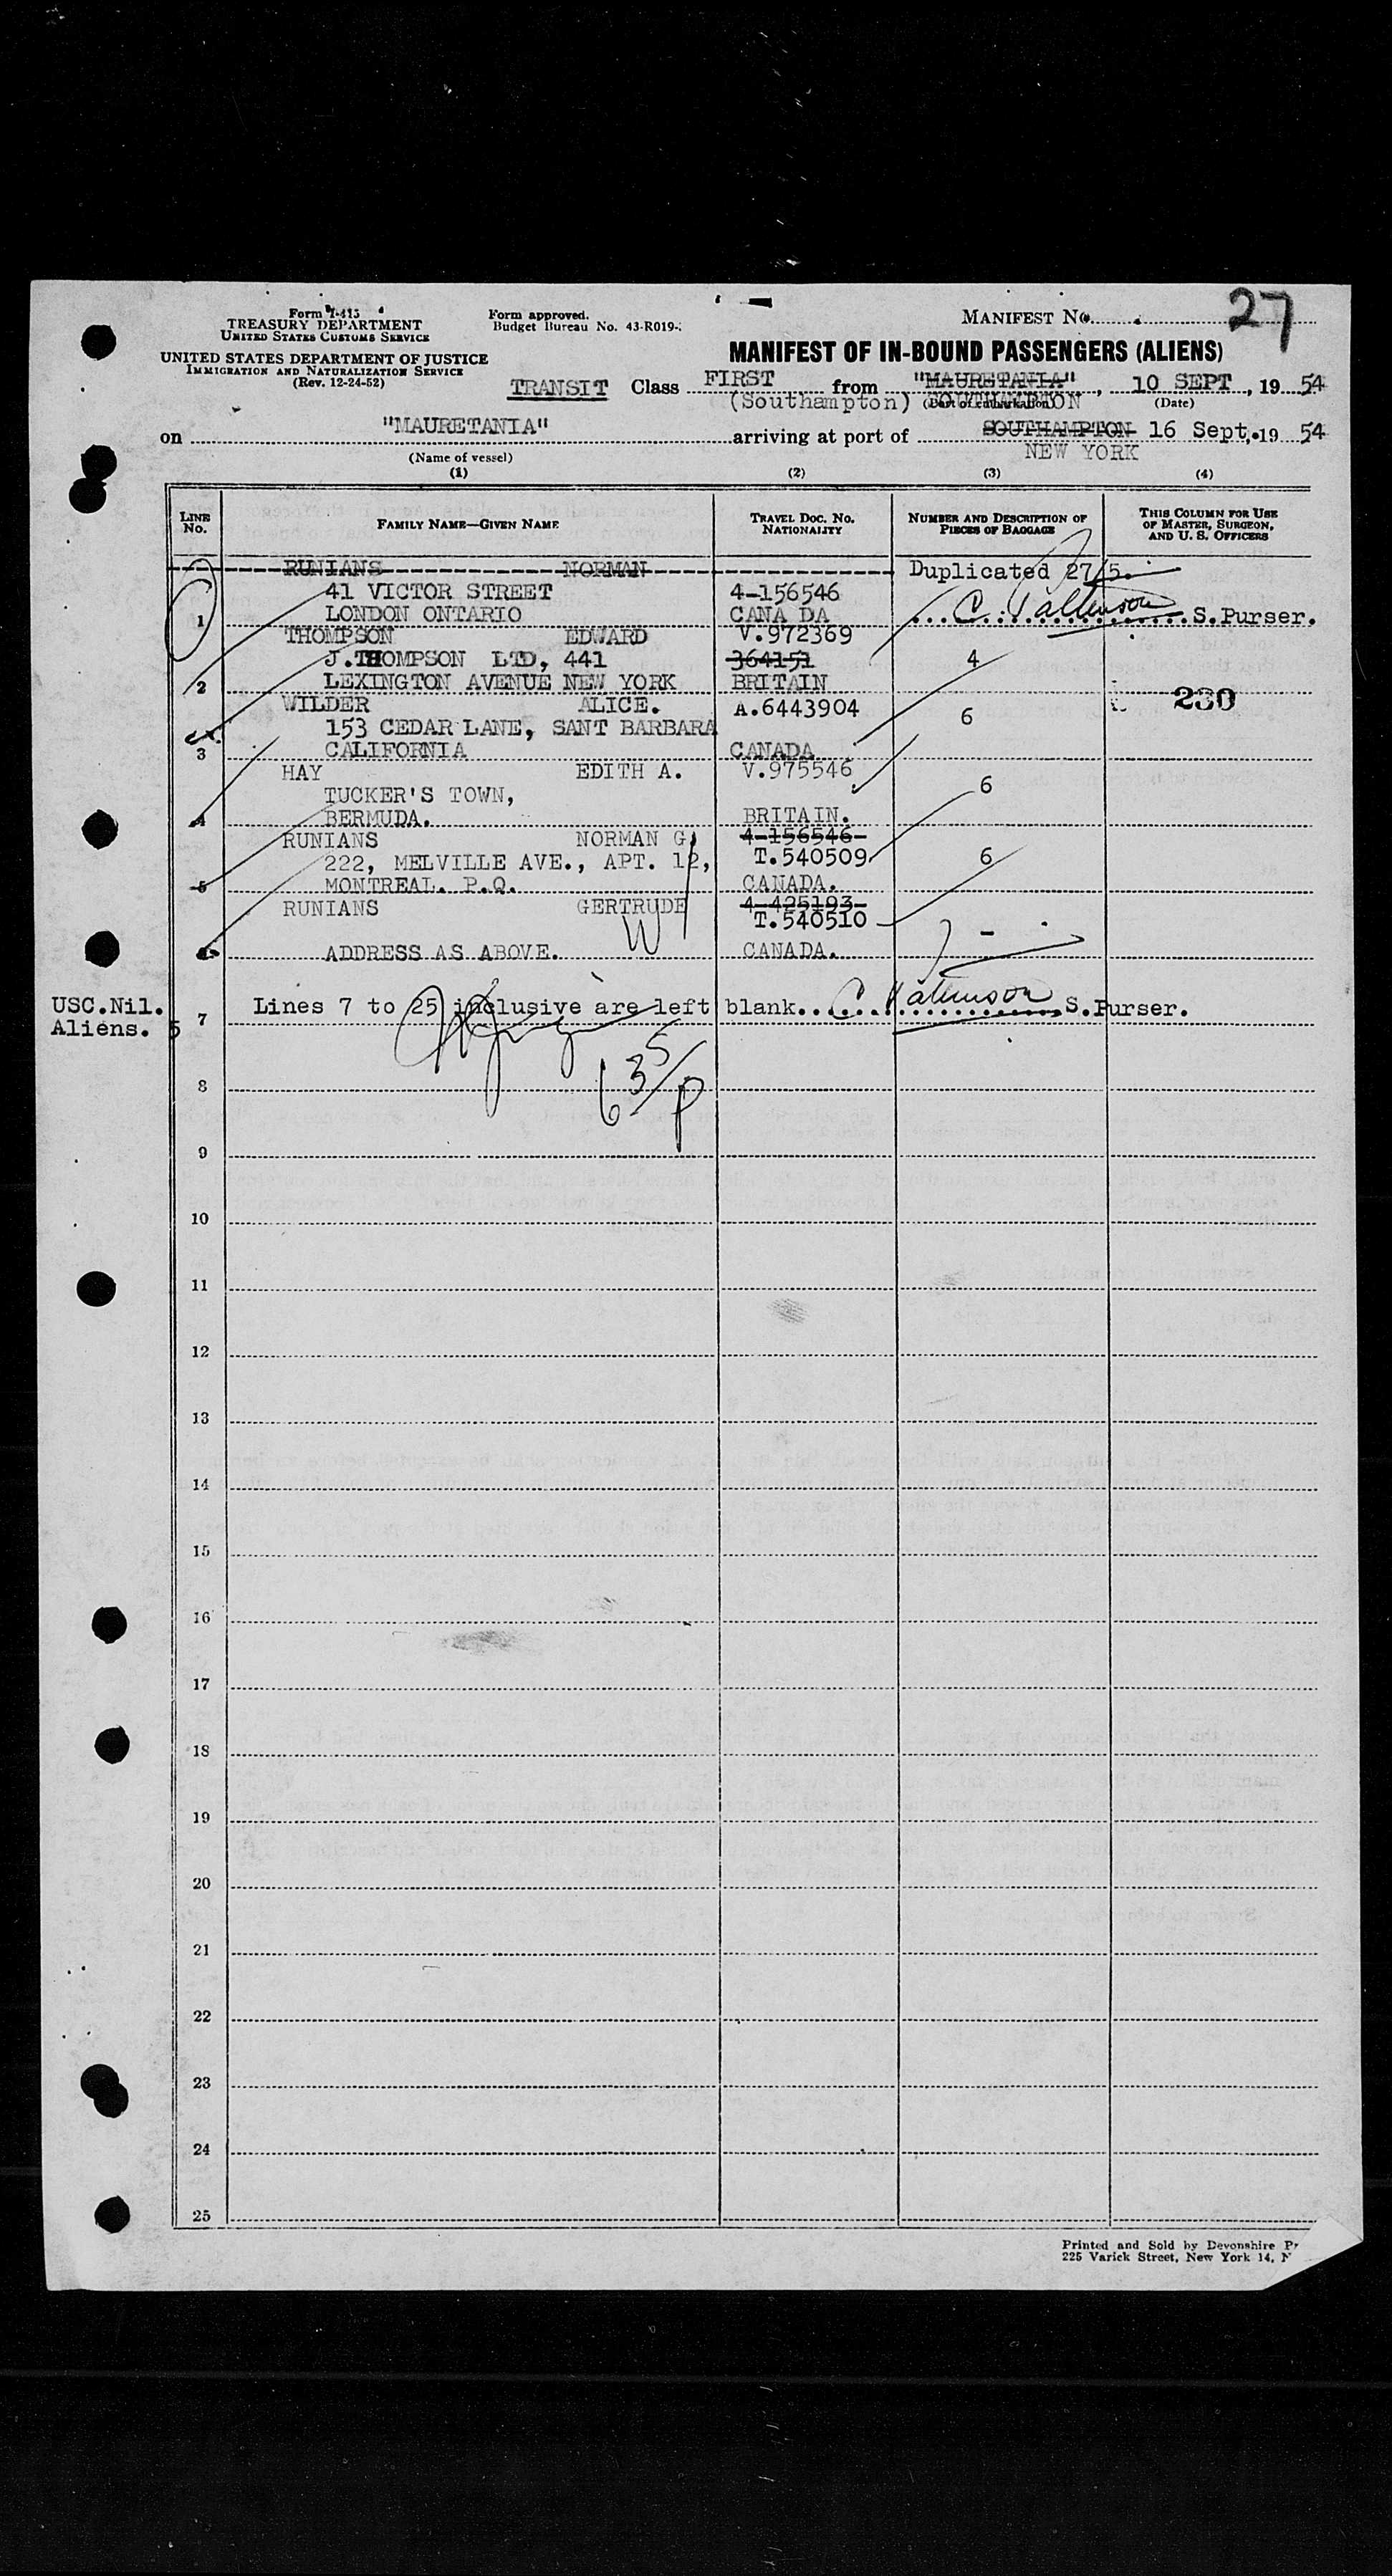 27
Form I-415
TREASURY DEPARTMENT
UNITED STATES CUSTOMS SERVICE
UNITED STATES DEPARTMENT OF JUSTICE
IMMIGRATION AND NATURALIZATION SERVICE
(Rev. 12-24-52)
Form approved.
Budget Bureau No. 43-R019-
MANIFEST NO.
MANIFEST OF IN-BOUND PASSENGERS (ALIENS)
TRANSIT Class FIRST from "MAURETANIA", 10 SEPT, 19 54
(Southampton) SOUTHAMPTON (Port of embarkation) (Date)
on "MAURETANIA" arriving at port of SOUTHAMPTON 16 Sept, 19 54
(Name of vessel) NEW YORK
(1) (2) (3) (4)
LINE NO. FAMILY NAME—GIVEN NAME TRAVEL DOC. NO. NATIONALITY NUMBER AND DESCRIPTION OF PIECES OF BAGGAGE THIS COLUMN FOR USE OF MASTER, SURGEON, AND U. S. OFFICERS
RUNIANS NORMAN Duplicated 27/5.
41 VICTOR STREET 4-156546
1 LONDON ONTARIO CANA DA S.Purser.
THOMPSON EDWARD V.972369
J.THOMPSON LTD, 441 364151 4
2 LEXINGTON AVENUE NEW YORK BRITAIN 230
WILDER ALICE. A.6443904 6
153 CEDAR LANE, SANT BARBARA
3 CALIFORNIA CANADA
HAY EDITH A. V.975546
TUCKER'S TOWN, 6
4 BERMUDA. BRITAIN.
RUNIANS NORMAN G. 4-156546-
222, MELVILLE AVE., APT. 12, T.540509 6
5 MONTREAL. P.Q. CANADA.
RUNIANS GERTRUDE 4-425193-
W T.540510
ADDRESS AS ABOVE. CANADA.
USC.Nil.
Aliens. 5
7 Lines 7 to 25 inclusive are left blank. S.Purser.
8
9
10
11
12
13
14
15
16
17
18
19
20
21
22
23
24
25
Printed and Sold by Devonshire
225 Varick Street, New York 14,